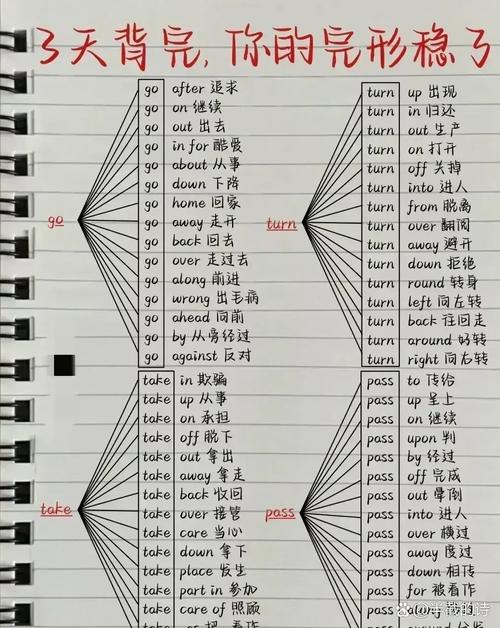 3天背完,你的完形稳了
go
go after 追求
go on 继续
go out 出去
go in for 酷爱
go about 从事
go down 下降
go home 回家
go away 走开
go back 回去
go over 走过去
go along 前进
go wrong 出毛病
go ahead 向前
go by 从旁经过
go against 反对
turn
turn up 出现
turn in 归还
turn out 生产
turn on 打开
turn off 关掉
turn into 进人
turn from 脱离
turn over 翻阅
turn away 避开
turn down 拒绝
turn round 转身
turn left 向左转
turn back 往回走
turn around 好转
turn right 向右转
take
take in 欺骗
take up 从事
take on 承担
take off 脱下
take out 拿出
take away 拿走
take back 收回
take over 接管
take care 当心
take down 拿下
take place 发生
take part in 参加
take care of 照顾
pass
pass to 传给
pass up 呈上
pass on 继续
pass upon 判
pass by 经过
pass off 完成
pass out 晕倒
pass into 进人
pass over 横过
pass away 度过
pass down 相传
pass for 被看作
pass